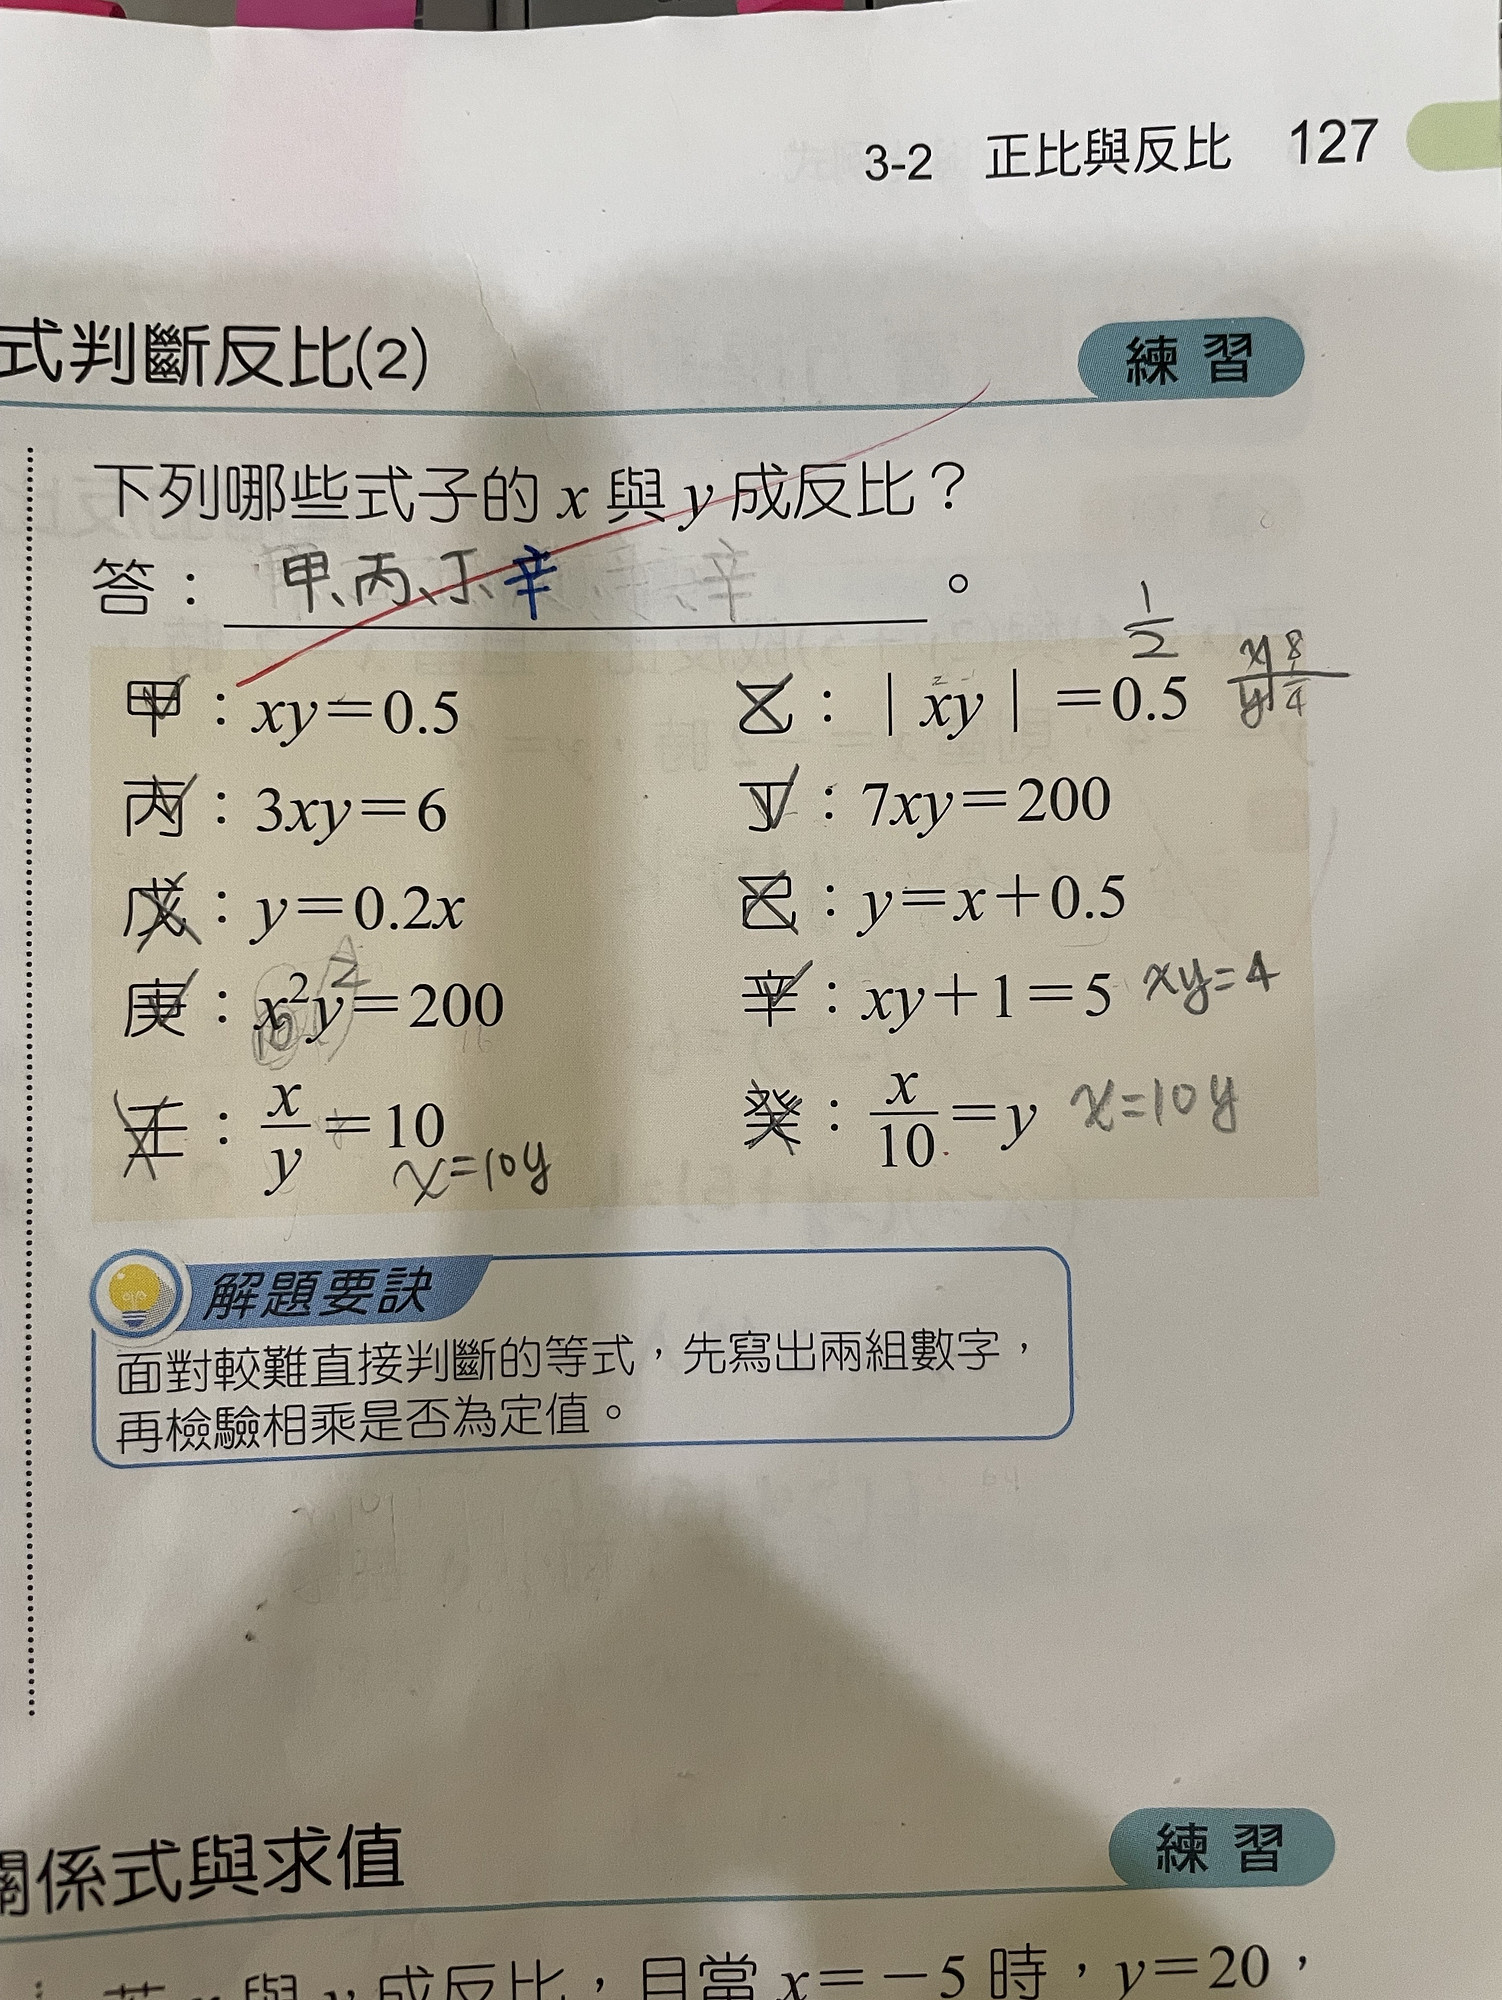 3-2 正比與反比 127
式判斷反比(2) 練習
下列哪些式子的 x 與 y 成反比？
答： 甲、丙、丁、辛 。
甲：xy＝0.5 乙：| xy |＝0.5 1/2 x 8
y 4
丙：3xy＝6 丁：7xy＝200
戊：y＝0.2x 己：y＝x＋0.5
庚：x²y＝200 辛：xy＋1＝5 xy=4
壬：x/y＝10 x=10y 癸：x/10＝y x=10y
解題要訣
面對較難直接判斷的等式，先寫出兩組數字，
再檢驗相乘是否為定值。
關係式與求值 練習
若 x 與 y 成反比，且當 x＝－5 時，y＝20，